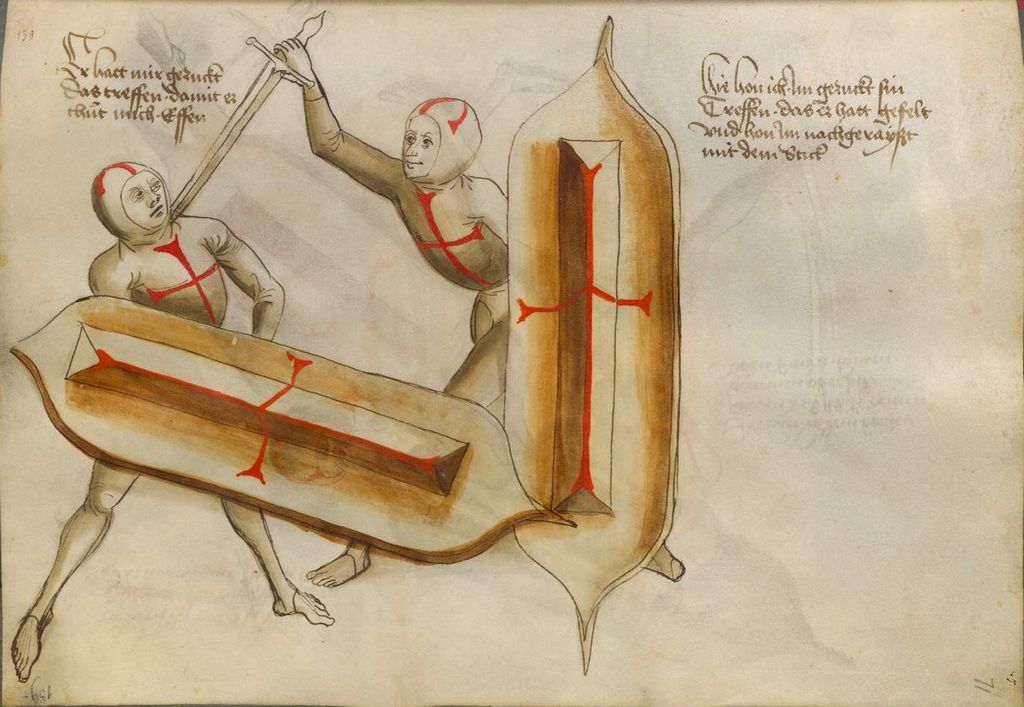 Er hatt mir geruckt
das treffen damit er
thut mich Effen
Hie hon ich Im geruckt sin
Treffen das er hatt gefelt
Vnd hon Im nachgeraÿst
mit dem Stich
139